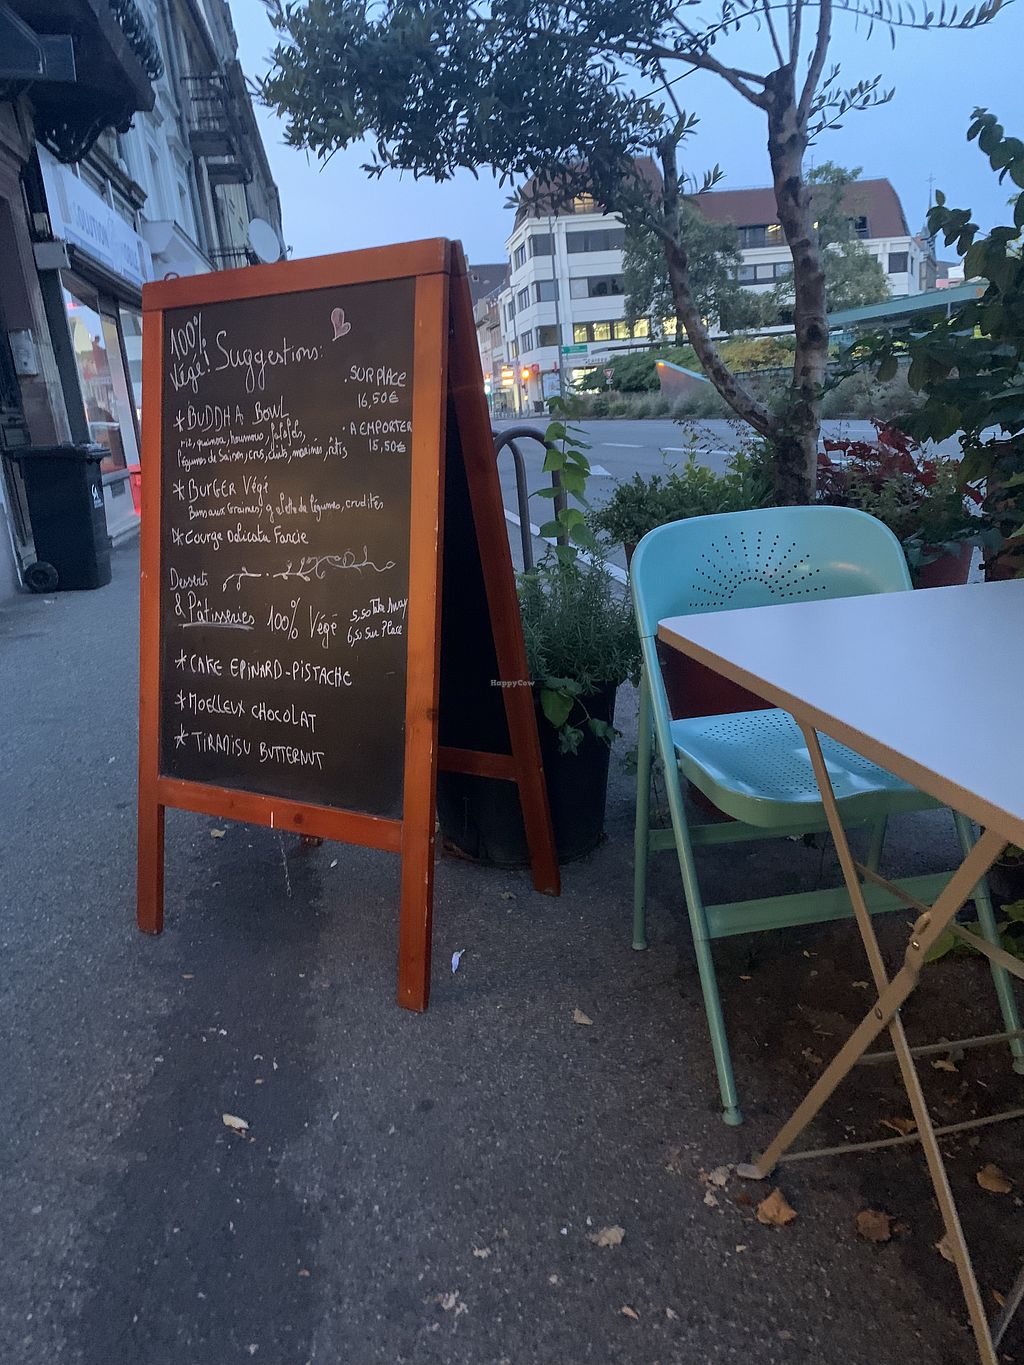 100%
Végé! Suggestions:
. SUR PLACE
16,50€
* BUDDHA BOWL
. A EMPORTER
15,50€
riz, quinoa, houmous, falafels,
légumes de Saison, crus, cuits, marinés, rôtis
* BURGER Végé
Buns aux Graines, galette de légumes, crudités
* Courge Delicata Farcie
Desserts
& Pâtisseries 100% Végé
5,50 Take Away
6,50 Sur Place
* CAKE EPINARD-PISTACHE
* MOELLEUX CHOCOLAT
* TIRAMISU BUTTERNUT
HappyCow